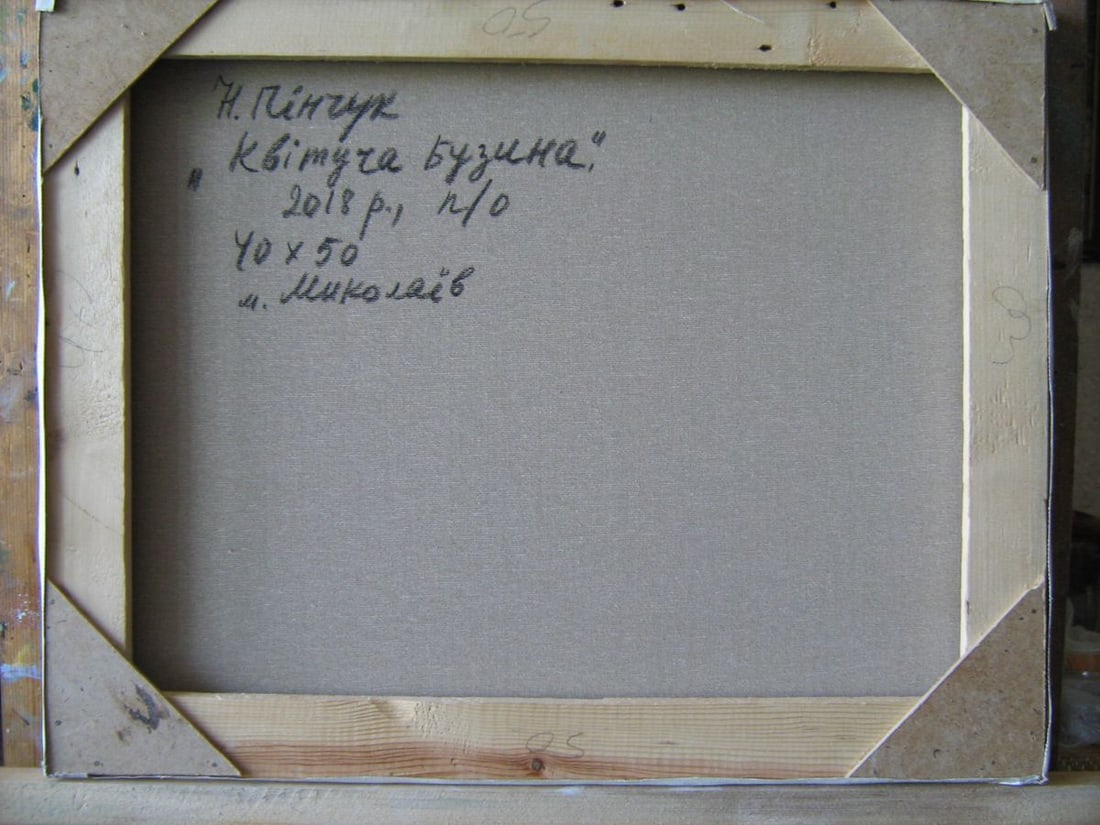 50
Н. Пінчук
„Квітуча Бузина".
2018 р., п/о
40 х 50
м. Миколаїв
50